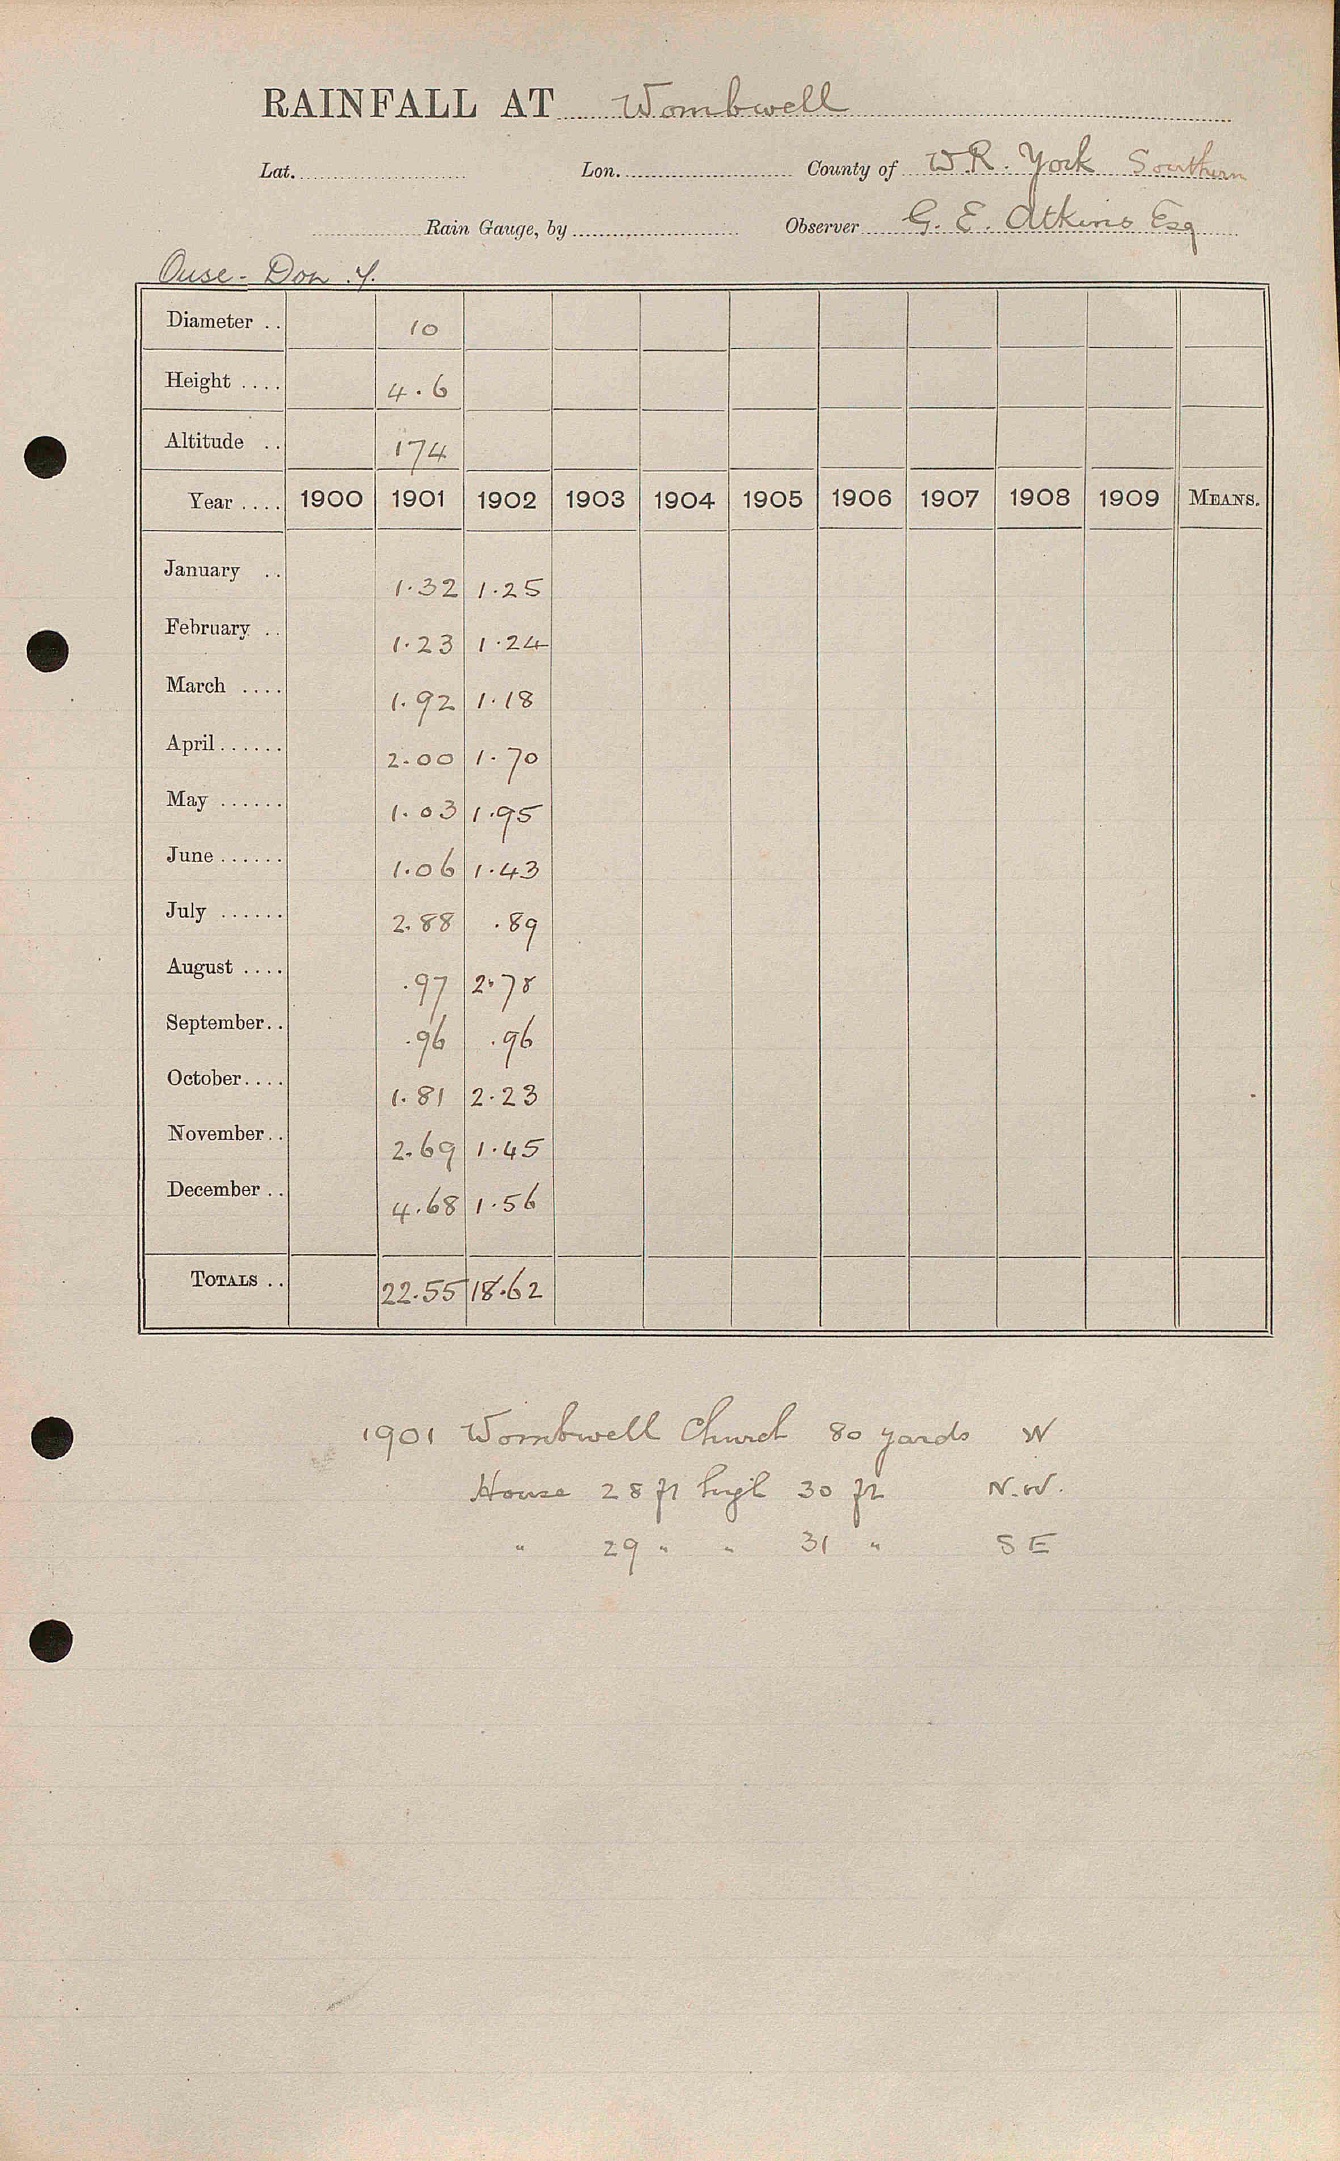 RAINFALL AT Wombwell
Lat. Lon. County of W.R. York Southern
Rain Gauge, by Observer G. E. Atkins Esq
Ouse - Don. Y.
Diameter .. 10
Height .... 4.6
Altitude .. 174
Year .... 1900 1901 1902 1903 1904 1905 1906 1907 1908 1909 MEANS.
January .. 1.32 1.25
February .. 1.23 1.24
March .... 1.92 1.18
April ...... 2.00 1.70
May ...... 1.03 1.95
June ...... 1.06 1.43
July ...... 2.88 .89
August .... .97 2.78
September.. .96 .96
October.... 1.81 2.23
November.. 2.69 1.45
December .. 4.68 1.56
TOTALS .. 22.55 18.62
1901 Wombwell Church 80 yards W
House 28 ft high 30 ft N.W.
" 29 " " 31 " S E